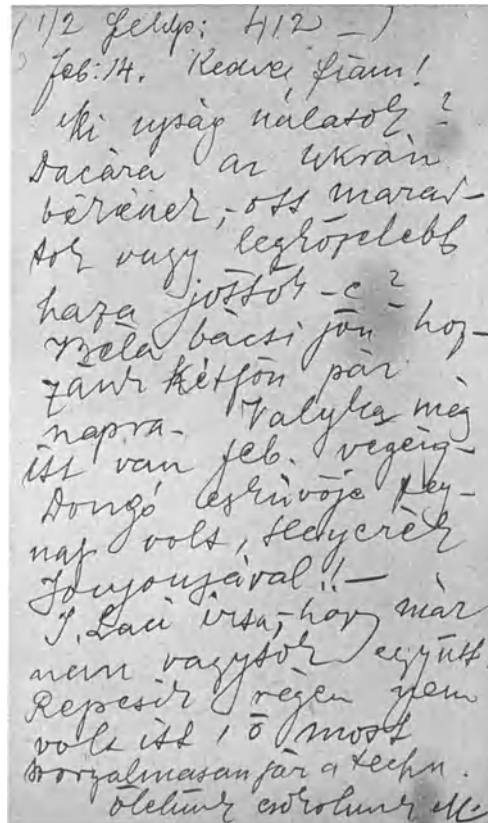 (1/2 Feldp: 412 –)
Feb: 14. Kedves fiam!
Mi ujság nálatok?
Dacára az ukrán
békének, – ott marad-
tok vagy legközelebb
haza jöttök – e?
Béla bácsi jön hoz-
zánk hétfőn pár
napra – Valyka még
itt van feb. végéig –
Dongó esküvője teg-
nap volt,
!! –
J. Laci irta, – hogy már
nem vagytok együtt.
Repcsik régen nem
volt itt, ő most
szorgalmasan jár a techn.
ölelünk csókolunk M.